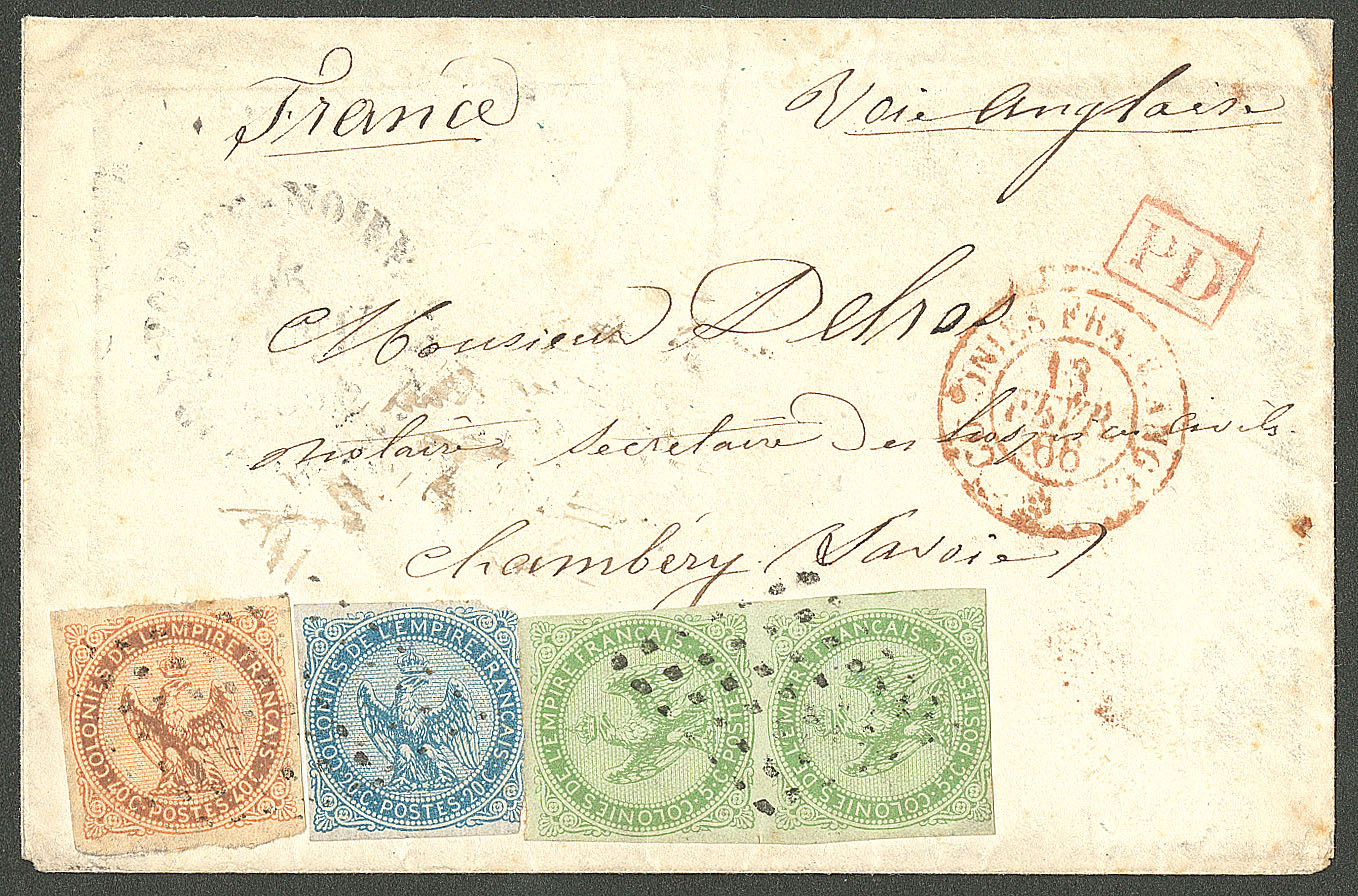 France
Voie Anglaise
PD
Monsieur Delros
13
FEVR
66
notaire, secrétaire des hospices civils
Chambéry (Savoie)
COLONIES DE L'EMPIRE FRANÇAIS
40 C. POSTES 40 C.
COLONIES DE L'EMPIRE FRANÇAIS
20 C. POSTES 20 C.
COLONIES DE L'EMPIRE FRANÇAIS
5 C. POSTES 5 C.
COLONIES DE L'EMPIRE FRANÇAIS
5 C. POSTES 5 C.